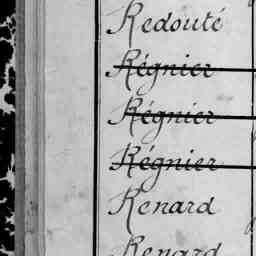 Redouté
Régnier
Régnier
Régnier
Renard
Renard